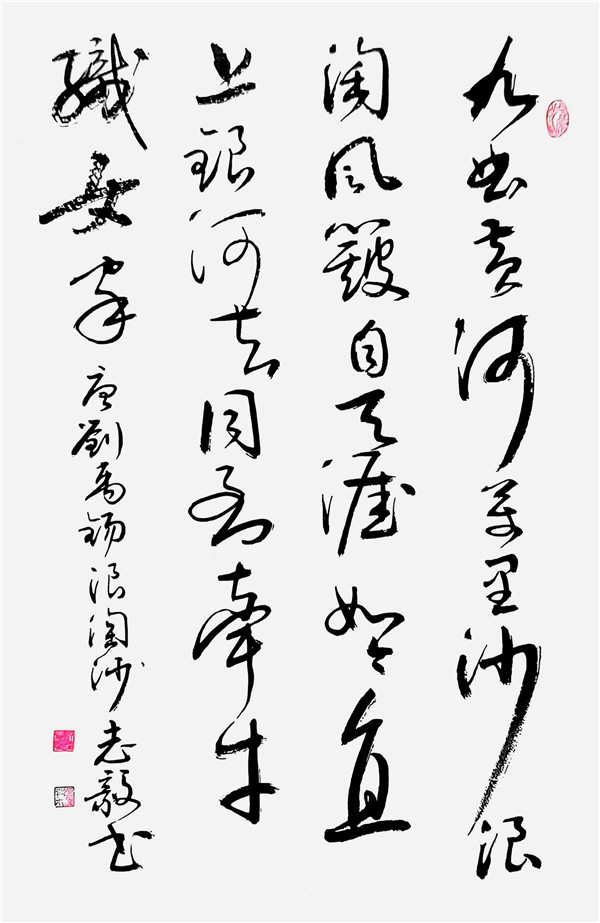 九曲黄河万里沙浪
淘风簸自天涯如今直
上银河去同到牵牛
織女家
唐劉禹锡浪淘沙
志毅书